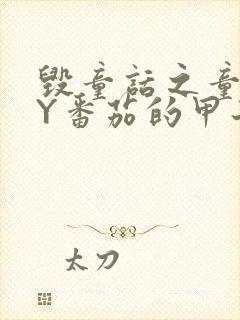 毁童话之童
Y番茄的甲
太刀